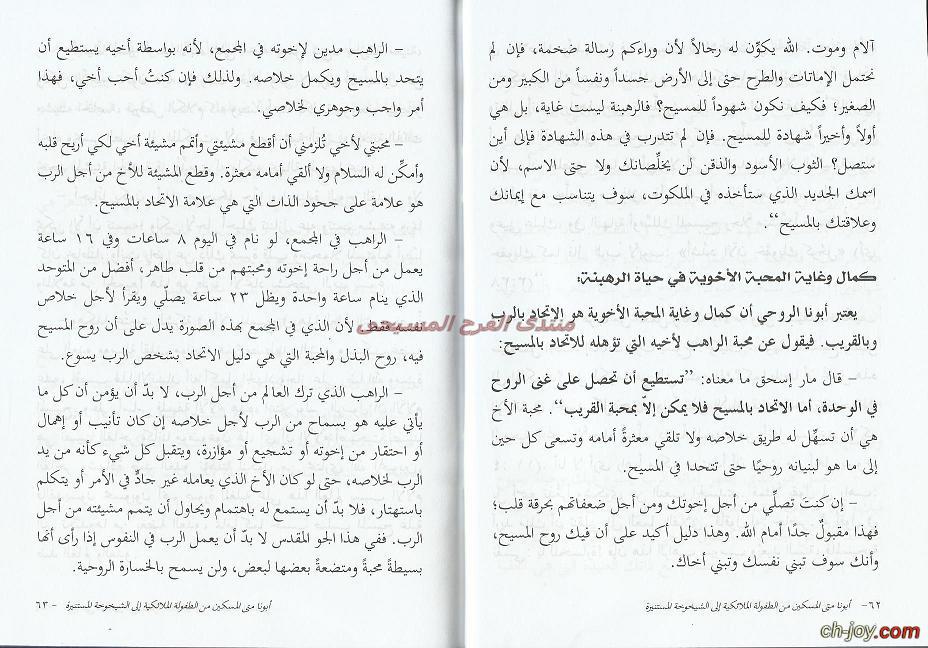 آلام وموت. الله يكوِّن له رجالاً لأن وراءكم رسالة ضخمة، فإن لم
نحتمل الإماتات والطرح حتى إلى الأرض جسداً ونفساً من الكبير ومن
الصغير؛ فكيف نكون شهوداً للمسيح؟ فالرهبنة ليست غاية، بل هي
أولاً وأخيراً شهادة للمسيح. فإن لم تتدرب في هذه الشهادة فإلى أين
ستصل؟ الثوب الأسود والذقن لن يخلِّصانك ولا حتى الاسم، لأن
اسمك الجديد الذي ستأخذه في الملكوت، سوف يتناسب مع إيمانك
وعلاقتك بالمسيح“.
كمال وغاية المحبة الأخوية في حياة الرهبنة:
يعتبر أبونا الروحي أن كمال وغاية المحبة الأخوية هو الاتحاد بالرب
وبالقريب. فيقول عن محبة الراهب لأخيه التي تؤهله للاتحاد بالمسيح:
– قال مار إسحق ما معناه: ”تستطيع أن تحصل على غنى الروح
في الوحدة، أما الاتحاد بالمسيح فلا يمكن إلاّ بمحبة القريب“. محبة الأخ
هي أن تسهِّل له طريق خلاصه ولا تلقي معثرةً أمامه وتسعى كل حين
إلى ما هو لبنيانه روحيًا حتى تتحدا في المسيح.
– إن كنتَ تصلِّي من أجل إخوتك ومن أجل ضعفاتهم بحرقة قلب؛
فهذا مقبولٌ جدًا أمام الله. وهذا دليل أكيد على أن فيك روح المسيح،
وأنك سوف تبني نفسك وتبني أخاك.
٦٢– أبونا متى المسكين من الطفولة الملائكية إلى الشيخوخة المستنيرة
– الراهب مدين لإخوته في المجمع، لأنه بواسطة أخيه يستطيع أن
يتحد بالمسيح ويكمل خلاصه. ولذلك فإن كنتُ أحب أخي، فهذا
أمر واجب وجوهري لخلاصي.
– محبتي لأخي تُلزمني أن أقطع مشيئتي وأتمم مشيئة أخي لكي أريح قلبه
وأمكِّن له السلام ولا ألقي أمامه معثرة. وقطع المشيئة للأخ من أجل الرب
هو علامة على جحود الذات التي هي علامة الاتحاد بالمسيح.
– الراهب في المجمع، لو نام في اليوم ٨ ساعات وفي ١٦ ساعة
يعمل من أجل راحة إخوته ومحبتهم من قلب طاهر، أفضل من المتوحد
الذي ينام ساعة واحدة ويظل ٢٣ ساعة يصلِّي ويقرأ لأجل خلاص
نفسه فقط. لأن الذي في المجمع بهذه الصورة يدل على أن روح المسيح
فيه، روح البذل والمحبة التي هي دليل الاتحاد بشخص الرب يسوع.
– الراهب الذي ترك العالم من أجل الرب، لا بدّ أن يؤمن أن كل ما
يأتي عليه هو بسماح من الرب لأجل خلاصه إن كان تأنيب أو إهمال
أو احتقار من إخوته أو تشجيع أو مؤازرة، ويتقبل كل شيء كأنه من يد
الرب لخلاصه، حتى لو كان الأخ الذي يعامله غير جادٍّ في الأمر أو يتكلم
باستهتار، فلا بدّ أن يستمع له باهتمام ويحاول أن يتمم مشيئته من أجل
الرب. ففي هذا الجو المقدس لا بدّ أن يعمل الرب في النفوس إذا رأى أنها
بسيطةً محبةً ومتضعةً بعضها لبعض، ولن يسمح بالخسارة الروحية.
أبونا متى المسكين من الطفولة الملائكية إلى الشيخوخة المستنيرة – ٦٣
منتدى الفرح المسيحى
ch-joy.com